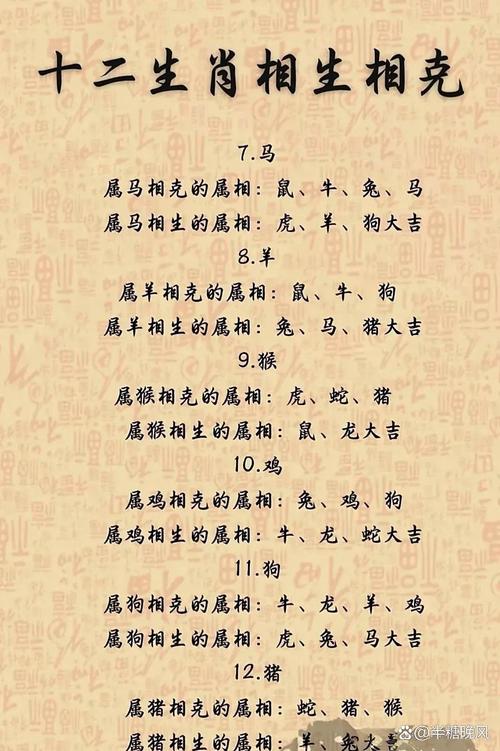 十二生肖相生相克
7.马
属马相克的属相：鼠、牛、兔、马
属马相生的属相：虎、羊、狗大吉
8.羊
属羊相克的属相：鼠、牛、狗
属羊相生的属相：兔、马、猪大吉
9.猴
属猴相克的属相：虎、蛇、猪
属猴相生的属相：鼠、龙大吉
10.鸡
属鸡相克的属相：兔、鸡、狗
属鸡相生的属相：牛、龙、蛇大吉
11.狗
属狗相克的属相：牛、龙、羊、鸡
属狗相生的属相：虎、兔、马大吉
12.猪
属猪相克的属相：蛇、猪、猴
属猪相生的属相：羊、兔大吉
半糖晚风